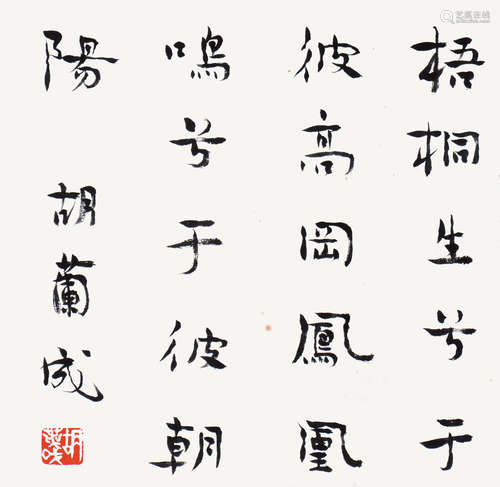 梧桐生兮于
彼高岡鳳凰
鳴兮于彼朝
陽
胡蘭成